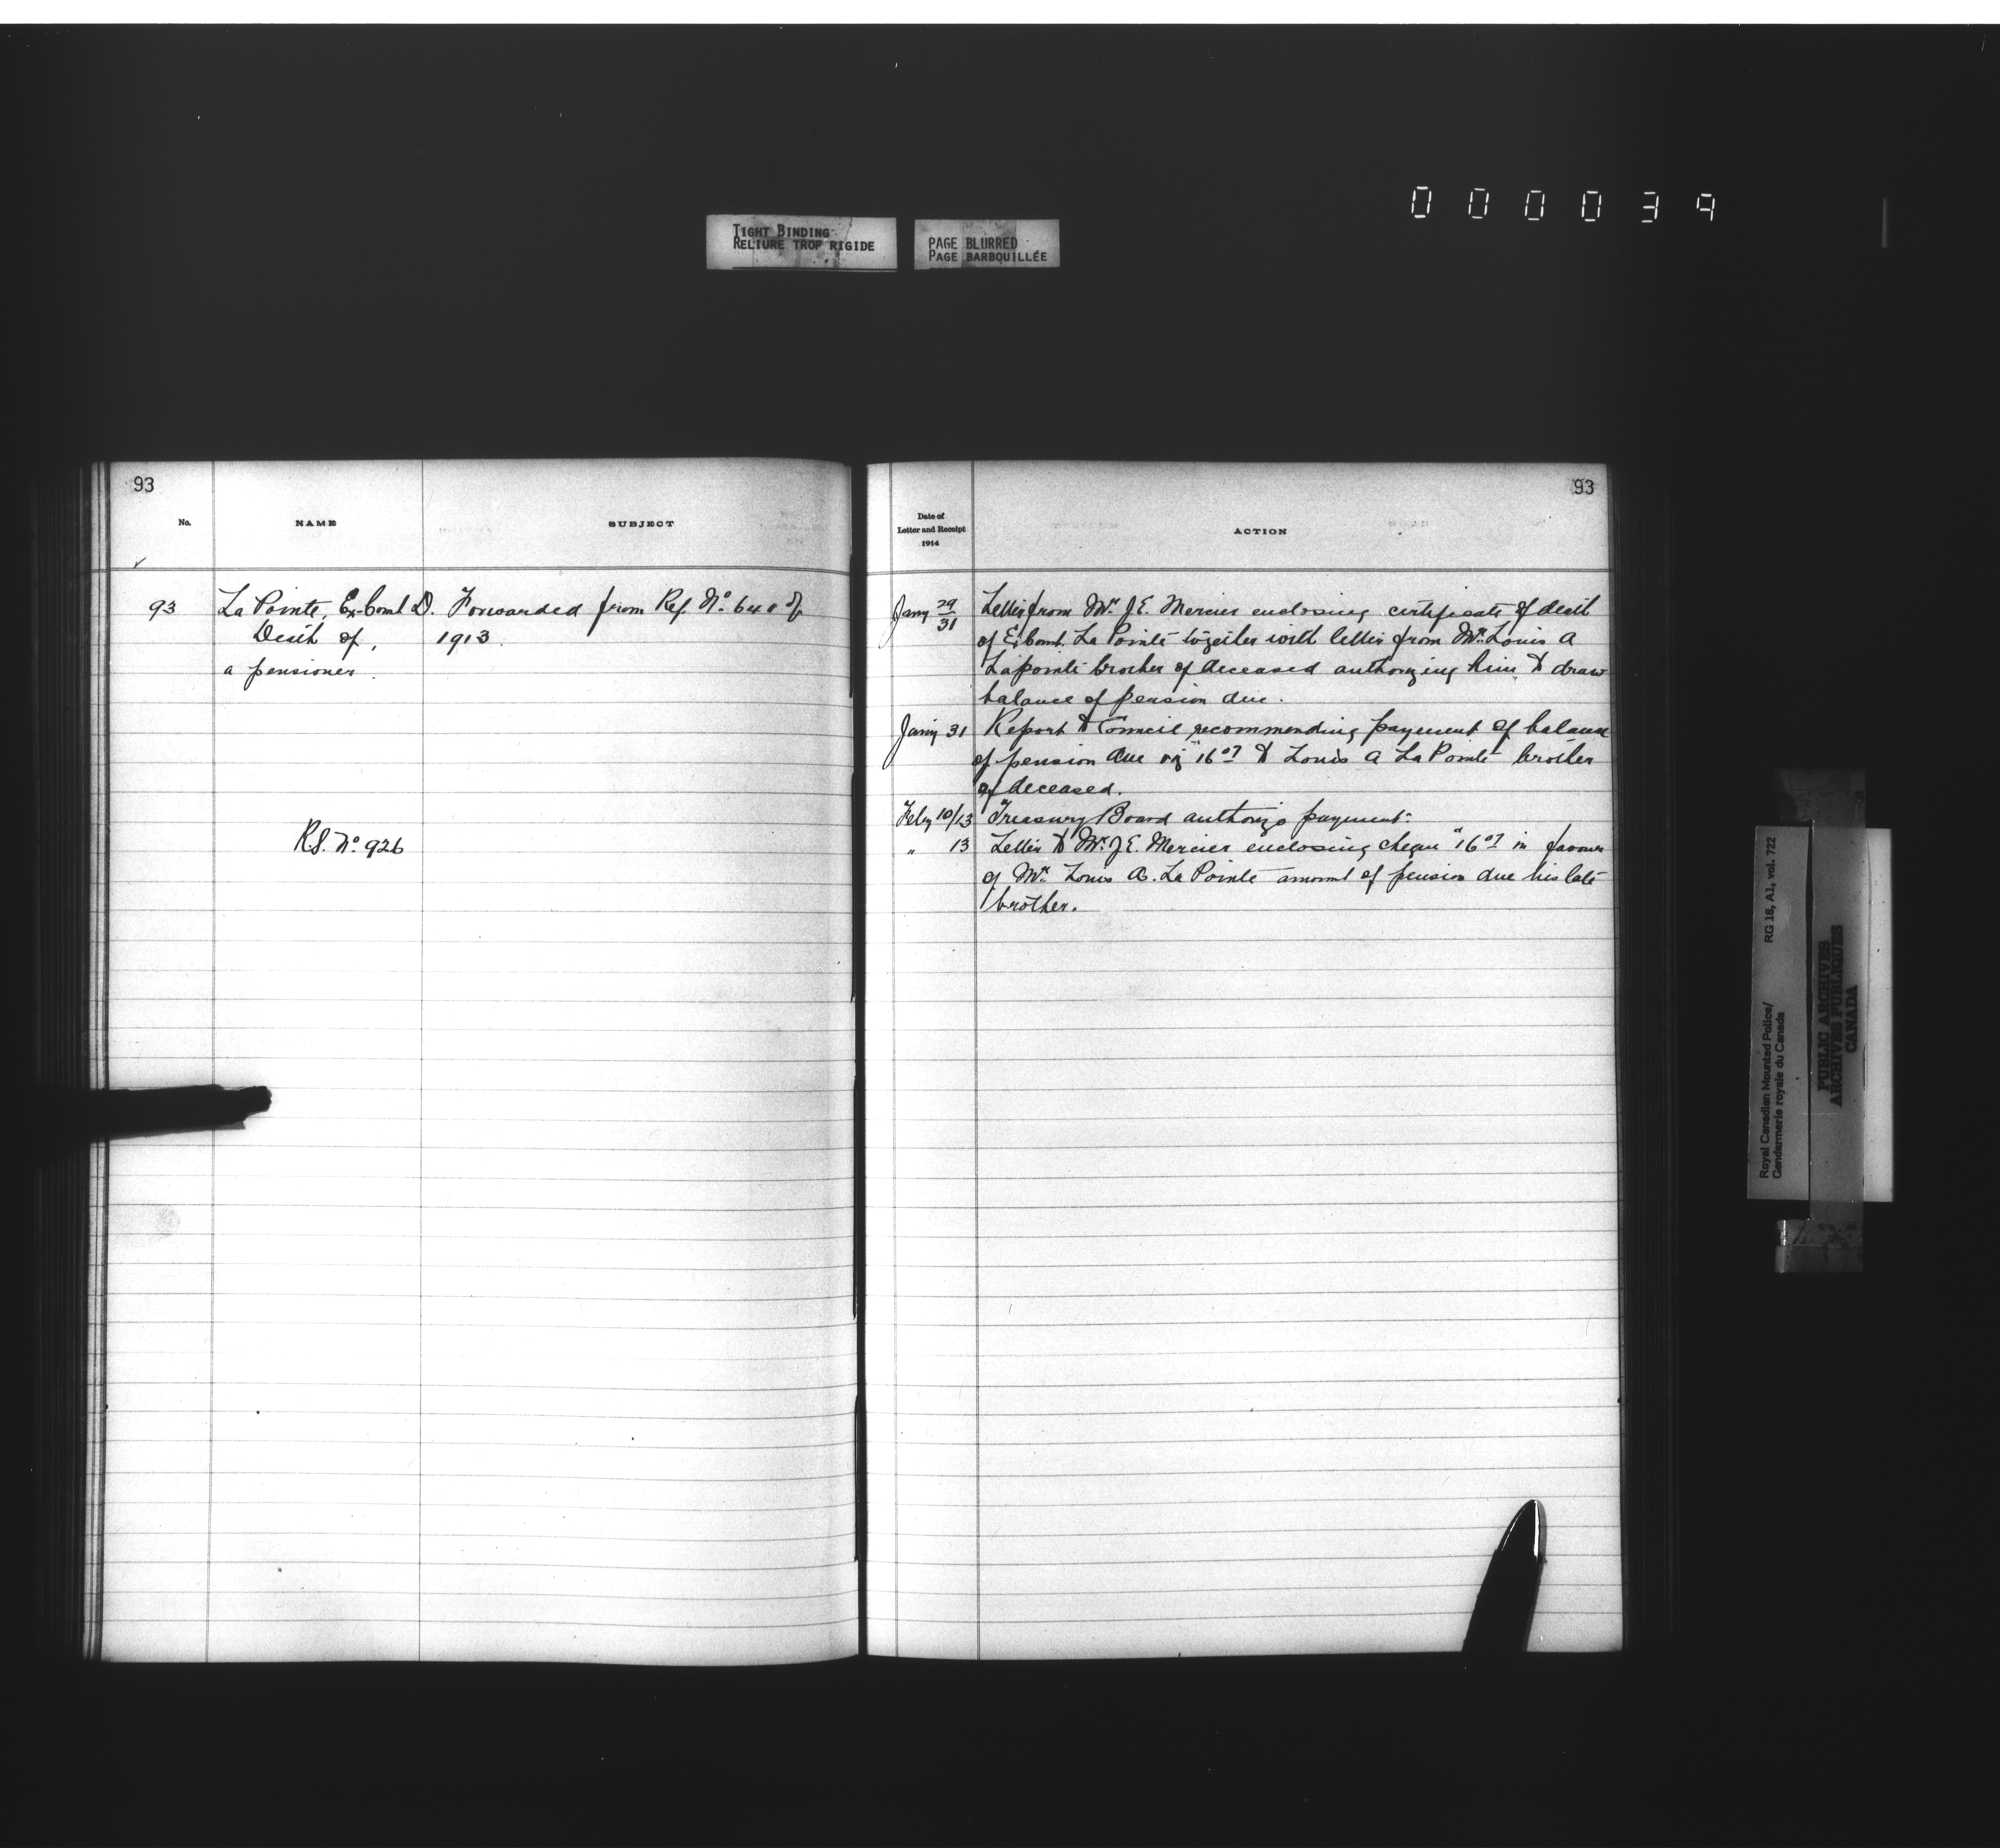 000039
TIGHT BINDING
RELIURE TROP RIGIDE
PAGE BLURRED
PAGE BARBOUILLÉE
93
No.
NAME
SUBJECT
93
La Pointe, Ex-Const D.
Death of,
a pensioner.
Forwarded from Ref. No. 648 of
1913.
R.S. No 926
93
Date of
Letter and Receipt
1914
ACTION
Jany 29/31
Letter from Mr. J.E. Mercier enclosing certificate of death
of Ex Const. La Pointe together with letter from Mr. Louis A
Lapointe brother of deceased authorizing him to draw
balance of pension due.
Jany 31 Report to Council recommending payment of balance
of pension due viz 16.07 to Louis A La Pointe brother
of deceased.
Feby 10/13 Treasury Board authorize payment.
" 13 Letter to Mr. J.E. Mercier enclosing cheque 16.07 in favour
of Mr. Louis A. La Pointe amount of pension due his late
brother.
Royal Canadian Mounted Police/
Gendarmerie royale du Canada
RG 18, A1, vol. 722
PUBLIC ARCHIVES
ARCHIVES PUBLIQUES
CANADA